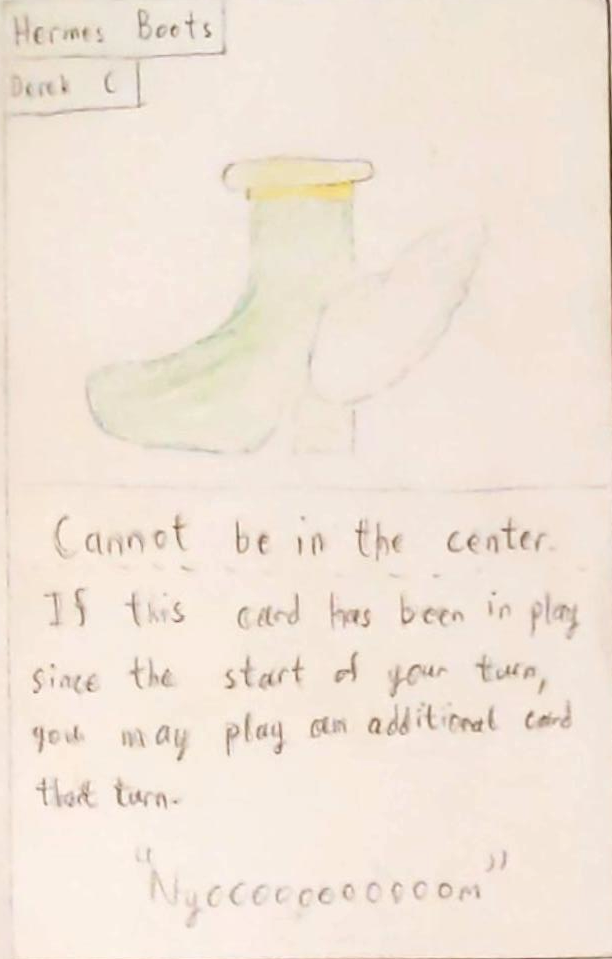 Hermes Boots
Derek C
Cannot be in the center.
If this card has been in play
since the start of your turn,
you may play an additional card
that turn.
"Nyooooooooooom"